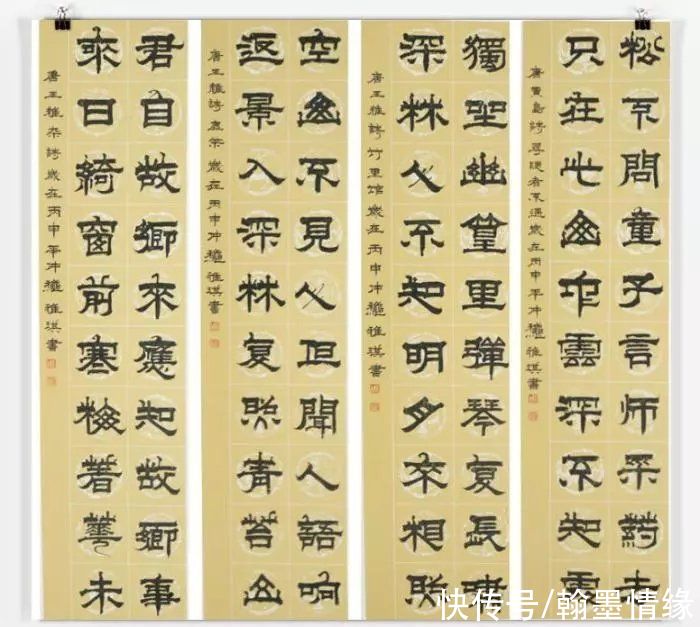 松下問童子言師采药去
只在此山中雲深不知處
唐賈島詩尋隐者不遇歲在丙申年仲穐雅琪書
獨坐幽篁里彈琴复長嘯
深林人不知明月來相照
唐王維詩竹里馆歲在丙申仲穐雅琪書
空山不見人但聞人語响
返景入深林复照青苔上
唐王維詩鹿柴歲在丙申仲穐雅琪書
君自故鄉來應知故鄉事
來日綺窗前寒梅著華未
唐王維杂詩歲在丙申年仲穐雅琪書
快传号/翰墨情缘